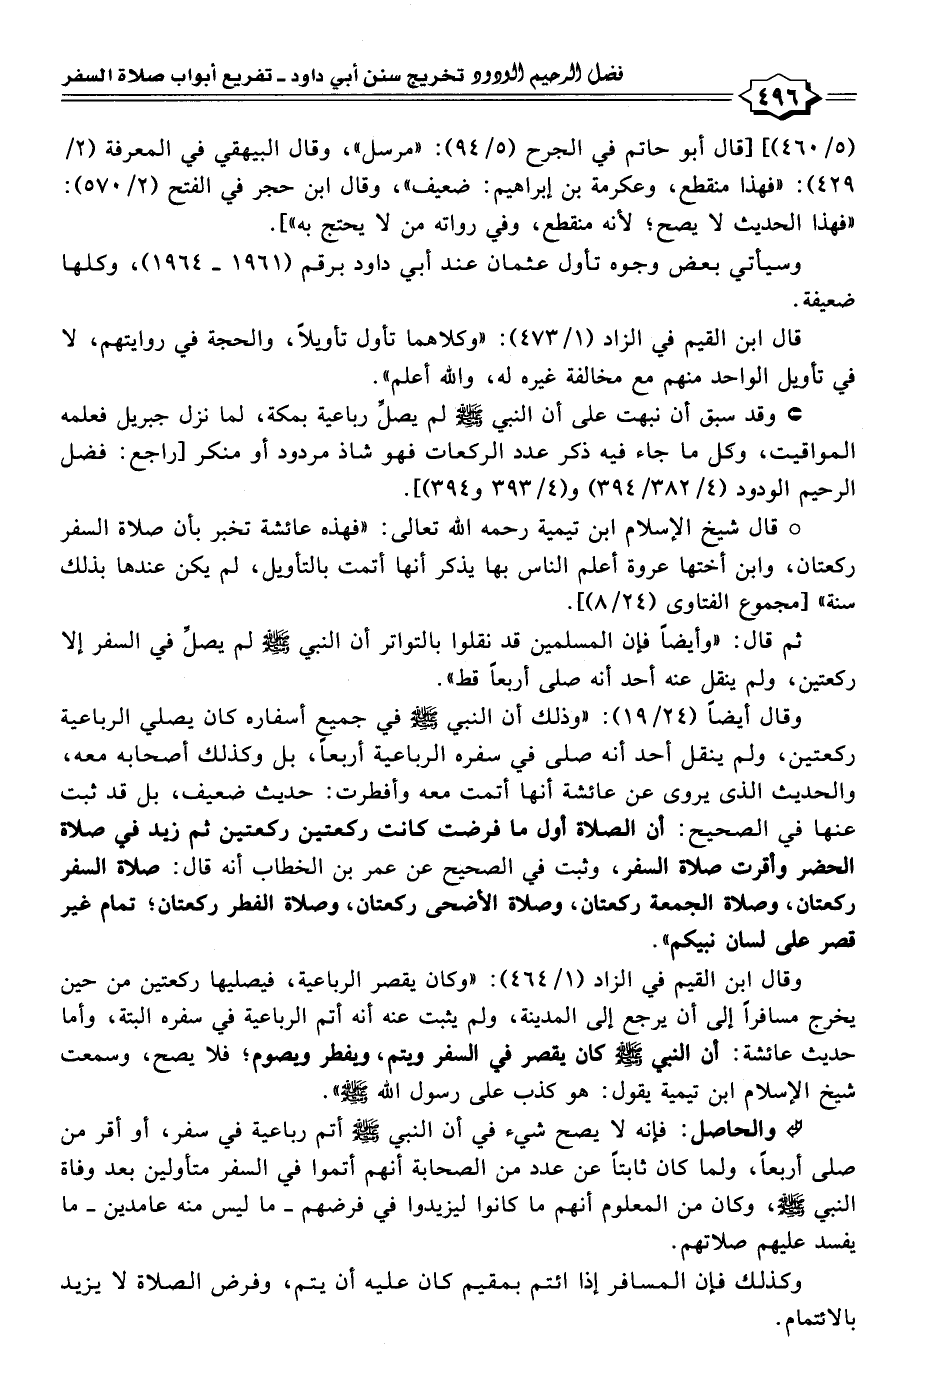 فضل الرحيم الودود تخريج سنن أبي داود - تفريع أبواب صلاة السفر
٤٩٦
(٤٦٠/٥)] [قال أبو حاتم في الجرح (٩٤/٥): «مرسل»، وقال البيهقي في المعرفة (٢/
٤٢٩): «فهذا منقطع، وعكرمة بن إبراهيم: ضعيف»، وقال ابن حجر في الفتح (٥٧٠/٢):
«فهذا الحديث لا يصح؛ لأنه منقطع، وفي رواته من لا يحتج به»].
وسيأتي بعض وجوه تأول عثمان عند أبي داود برقم (١٩٦١ - ١٩٦٤)، وكلها
ضعيفة.
قال ابن القيم في الزاد (٤٧٣/١): «وكلاهما تأول تأويلاً، والحجة في روايتهم، لا
في تأويل الواحد منهم مع مخالفة غيره له، والله أعلم».
⊃ وقد سبق أن نبهت على أن النبي ﷺ لم يصلِّ رباعية بمكة، لما نزل جبريل فعلمه
المواقيت، وكل ما جاء فيه ذكر عدد الركعات فهو شاذ مردود أو منكر [راجع: فضل
الرحيم الودود (٣٩٤/٣٨٢/٤) و(٣٩٣/٤ و٣٩٤)].
○ قال شيخ الإسلام ابن تيمية رحمه الله تعالى: «فهذه عائشة تخبر بأن صلاة السفر
ركعتان، وابن أختها عروة أعلم الناس بها يذكر أنها أتمت بالتأويل، لم يكن عندها بذلك
سنة» [مجموع الفتاوى (٨/٢٤)].
ثم قال: «وأيضاً فإن المسلمين قد نقلوا بالتواتر أن النبي ﷺ لم يصلِّ في السفر إلا
ركعتين، ولم ينقل عنه أحد أنه صلى أربعاً قط».
وقال أيضاً (١٩/٢٤): «وذلك أن النبي ﷺ في جميع أسفاره كان يصلي الرباعية
ركعتين، ولم ينقل أحد أنه صلى في سفره الرباعية أربعاً، بل وكذلك أصحابه معه،
والحديث الذى يروى عن عائشة أنها أتمت معه وأفطرت: حديث ضعيف، بل قد ثبت
عنها في الصحيح: أن الصلاة أول ما فرضت كانت ركعتين ركعتين ثم زيد في صلاة
الحضر وأقرت صلاة السفر، وثبت في الصحيح عن عمر بن الخطاب أنه قال: صلاة السفر
ركعتان، وصلاة الجمعة ركعتان، وصلاة الأضحى ركعتان، وصلاة الفطر ركعتان؛ تمام غير
قصر على لسان نبيكم».
وقال ابن القيم في الزاد (٤٦٤/١): «وكان يقصر الرباعية، فيصليها ركعتين من حين
يخرج مسافراً إلى أن يرجع إلى المدينة، ولم يثبت عنه أنه أتم الرباعية في سفره البتة، وأما
حديث عائشة: أن النبي ﷺ كان يقصر في السفر ويتم، ويفطر ويصوم؛ فلا يصح، وسمعت
شيخ الإسلام ابن تيمية يقول: هو كذب على رسول الله ﷺ».
والحاصل: فإنه لا يصح شيء في أن النبي ﷺ أتم رباعية في سفر، أو أقر من
صلى أربعاً، ولما كان ثابتاً عن عدد من الصحابة أنهم أتموا في السفر متأولين بعد وفاة
النبي ﷺ، وكان من المعلوم أنهم ما كانوا ليزيدوا في فرضهم - ما ليس منه عامدين - ما
يفسد عليهم صلاتهم.
وكذلك فإن المسافر إذا ائتم بمقيم كان عليه أن يتم، وفرض الصلاة لا يزيد
بالائتمام.